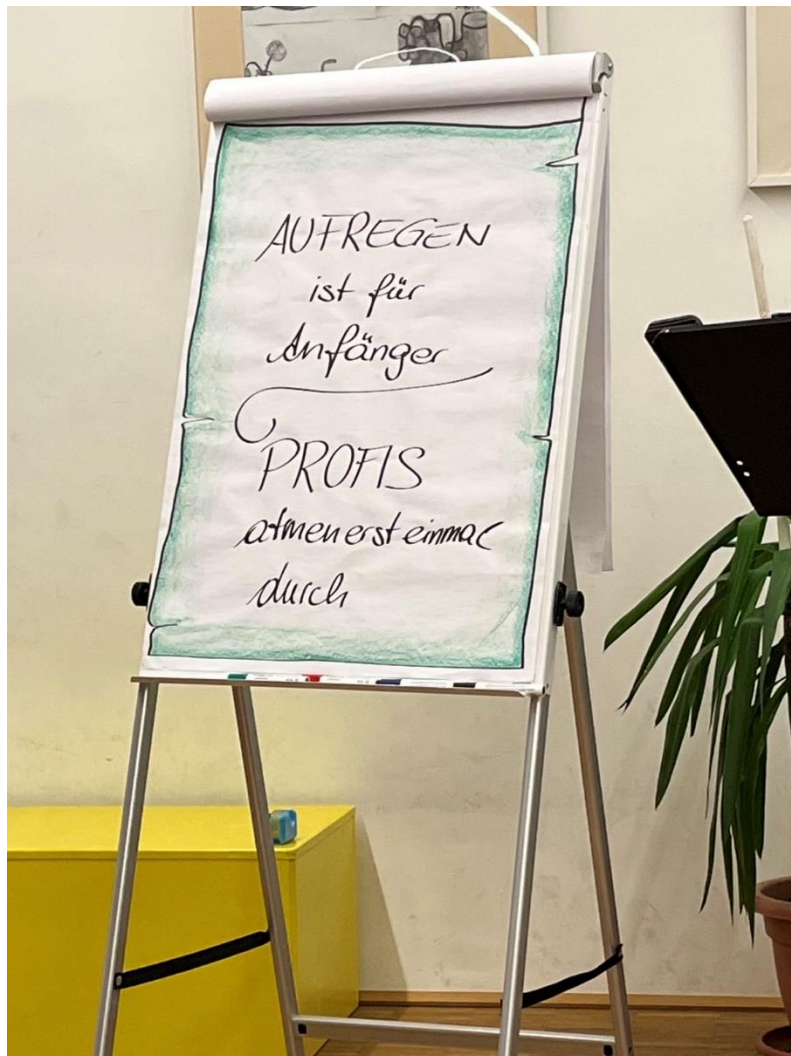 AUFREGEN
ist für
Anfänger
PROFIS
atmen erst einmal
durch